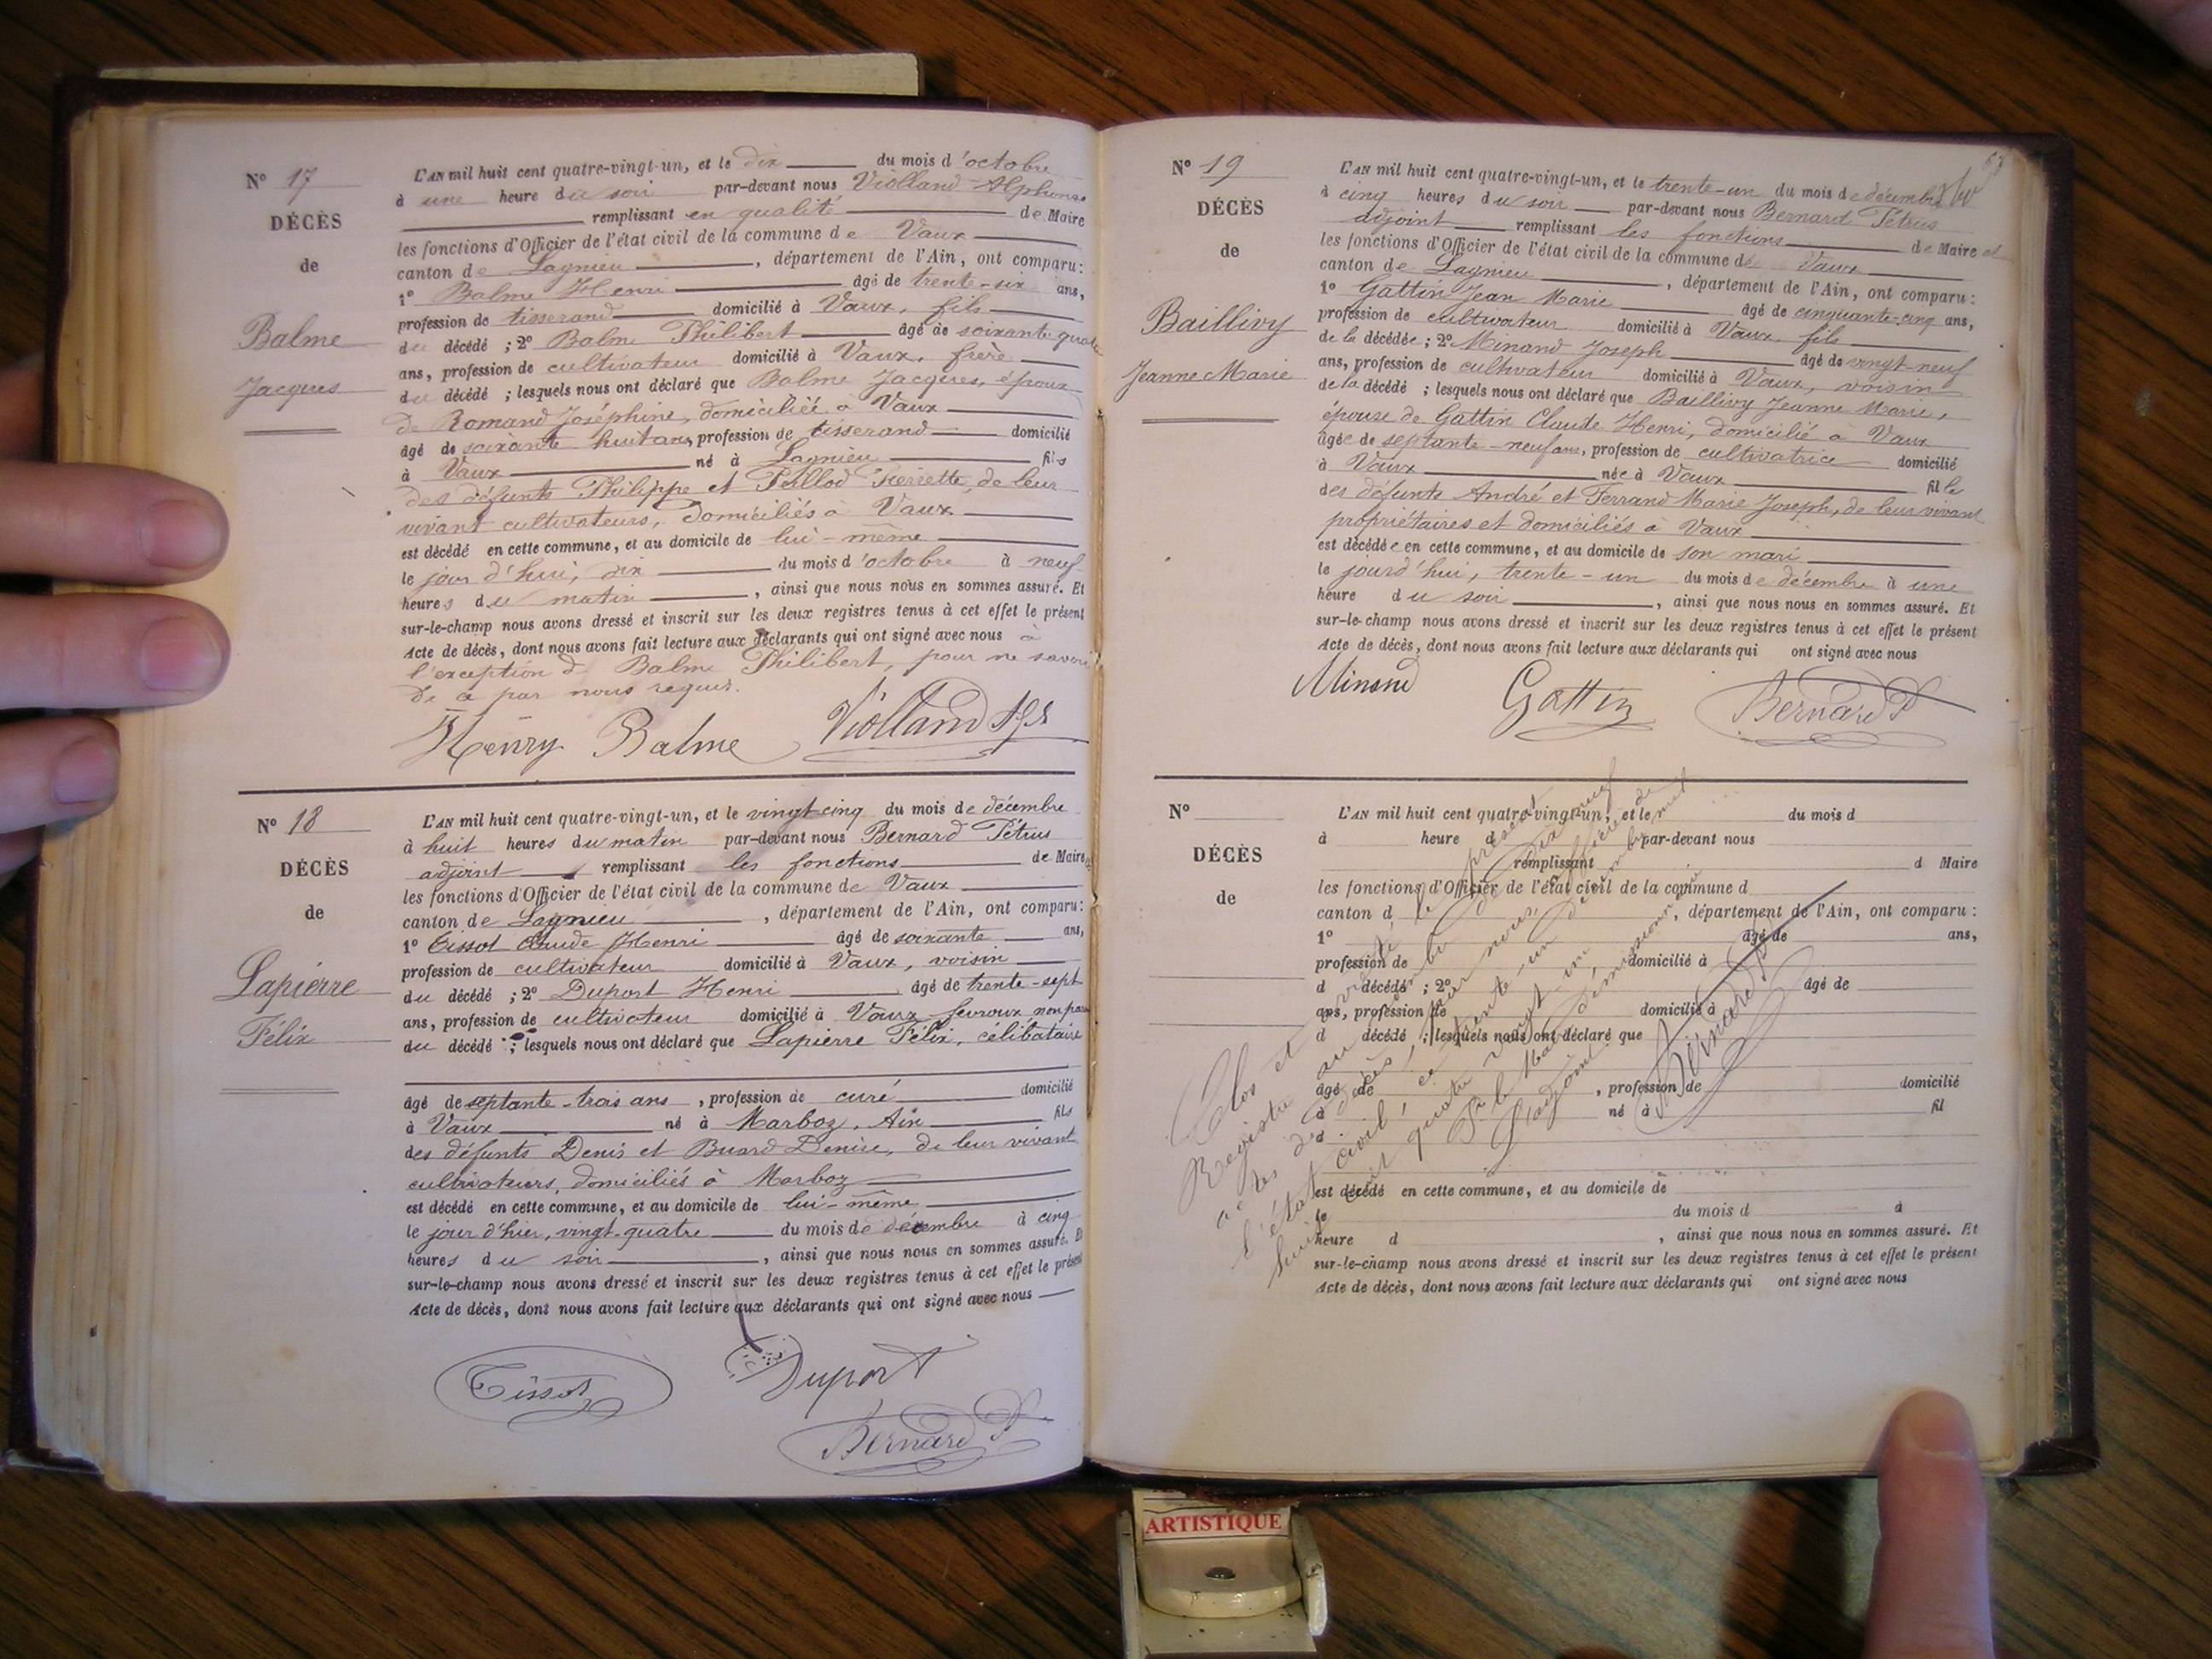 N° 17
DÉCÈS
de
Balme
Jacques
L'AN mil huit cent quatre-vingt-un, et le dix du mois d'octobre
à une heure du soir par-devant nous Violland Alphonse
remplissant en qualité de Maire
les fonctions d'Officier de l'état civil de la commune de Vaux
canton de Lagnieu, département de l'Ain, ont comparu :
1° Balme Henri âgé de trente-six ans,
profession de tisserand domicilié à Vaux, fils
du décédé ; 2° Balme Philibert âgé de soixante quatre
ans, profession de cultivateur domicilié à Vaux, frère
du décédé ; lesquels nous ont déclaré que Balme Jacques, époux
de Romand Joséphine, domiciliée à Vaux
âgé de soixante huit ans, profession de tisserand domicilié
à Vaux né à Lagnieu fils
des défunts Philippe et de leur
vivant cultivateurs, domiciliés à Vaux
est décédé en cette commune, et au domicile de lui-même
le jour d'hui, dix du mois d'octobre à neuf
heures du matin, ainsi que nous nous en sommes assuré. Et
sur-le-champ nous avons dressé et inscrit sur les deux registres tenus à cet effet le présent
Acte de décès, dont nous avons fait lecture aux déclarants qui ont signé avec nous à
l'exception d Balme Philibert, pour ne savoir
de ce par nous requis.
Henry Balme Violland
N° 18
DÉCÈS
de
Lapierre
Félix
L'AN mil huit cent quatre-vingt-un, et le vingt cinq du mois de décembre
à huit heures du matin par-devant nous Bernard Pétrus
adjoint remplissant les fonctions de Maire et
les fonctions d'Officier de l'état civil de la commune de Vaux
canton de Lagnieu, département de l'Ain, ont comparu :
1° Tissot Claude Henri âgé de soixante ans,
profession de cultivateur domicilié à Vaux, voisin
du décédé ; 2° Duport Henri âgé de trente-sept
ans, profession de cultivateur domicilié à Vaux
du décédé ; lesquels nous ont déclaré que Lapierre Félix, célibataire
âgé de septante-trois ans, profession de curé domicilié
à Vaux né à Marboz, Ain fils
des défunts Denis et Buard Denise, de leur vivant
cultivateurs, domiciliés à Marboz
est décédé en cette commune, et au domicile de lui-même
le jour d'hier, vingt-quatre du mois de décembre à cinq
heures du soir, ainsi que nous nous en sommes assuré. Et
sur-le-champ nous avons dressé et inscrit sur les deux registres tenus à cet effet le présent
Acte de décès, dont nous avons fait lecture aux déclarants qui ont signé avec nous
Tissot Duport
Bernard P
N° 19
DÉCÈS
de
Baillivy
Jeanne Marie
L'AN mil huit cent quatre-vingt-un, et le trente-un du mois de décembre
à cinq heures du soir par-devant nous Bernard Pétrus
adjoint remplissant les fonctions de Maire et
les fonctions d'Officier de l'état civil de la commune de Vaux
canton de Lagnieu, département de l'Ain, ont comparu :
1° Gattin Jean Marie âgé de cinquante-cinq ans,
profession de cultivateur domicilié à Vaux, fils
de la décédée ; 2° Minand Joseph âgé de vingt-neuf
ans, profession de cultivateur domicilié à Vaux, voisin
de la décédé ; lesquels nous ont déclaré que Baillivy Jeanne Marie,
épouse de Gattin Claude Henri, domicilié à Vaux
âgée de septante-neuf ans, profession de cultivatrice domicilié
à Vaux née à Vaux fille
des défunts André et Ferrand Marie Joseph, de leur vivant
propriétaires et domiciliés à Vaux
est décédée en cette commune, et au domicile de son mari
le jourd'hui, trente-un du mois de décembre à une
heure du soir, ainsi que nous nous en sommes assuré. Et
sur-le-champ nous avons dressé et inscrit sur les deux registres tenus à cet effet le présent
Acte de décès, dont nous avons fait lecture aux déclarants qui ont signé avec nous
Minand Gattin Bernard P
N°
DÉCÈS
de
L'AN mil huit cent quatre-vingt-un, et le du mois d
à heure d par-devant nous
remplissant d Maire
les fonctions d'Officier de l'état civil de la commune d
canton d, département de l'Ain, ont comparu :
1° âgé de ans,
profession de domicilié à
d décédé ; 2° âgé de
ans, profession de domicilié à
d décédé ; lesquels nous ont déclaré que
âgé de, profession de domicilié
à né à fil
est décédé en cette commune, et au domicile de
le du mois d à
heure d, ainsi que nous nous en sommes assuré. Et
sur-le-champ nous avons dressé et inscrit sur les deux registres tenus à cet effet le présent
Acte de décès, dont nous avons fait lecture aux déclarants qui ont signé avec nous
Clos et le présent
Registre au de dix neuf
actes de décès, par nous, officier de
l'état civil, ce trente-un décembre mil
huit cent quatre vingt-un
P. le Maire démissionnaire
L'adjoint
Bernard P
ARTISTIQUE